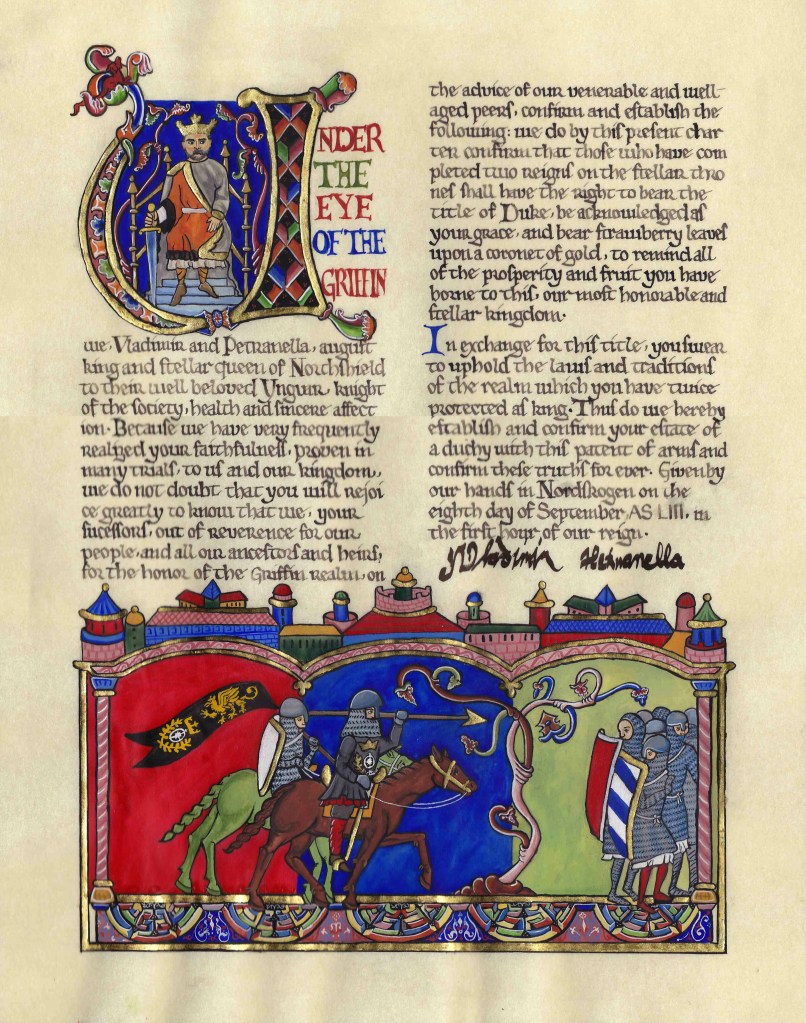 UNDER
THE
EYE
OF THE
GRIFFIN
we, Vladimir and Petranella, august
king and stellar queen of Northshield
to their well beloved Vnguir, knight
of the society, health and sincere affect
ion. Because we have very frequently
realized your faithfulness, proven in
many trials, to us and our kingdom,
we do not doubt that you will rejoi
ce greatly to know that we, your
sucessors, out of reverence for our
people, and all our ancestors and heirs,
for the honor of the Griffin realm, on
the advice of our venerable and well
aged peers, confirm and establish the
following: we do by this present char
ter confirm that those who have com
pleted two reigns on the stellar thro
nes shall have the right to bear the
title of Duke, be acknowledged as
your grace, and bear strawberry leaves
upon a coronet of gold, to remind all
of the prosperity and fruit you have
borne to this, our most honorable and
stellar kingdom.
In exchange for this title, you swear
to uphold the laws and traditions
of the realm which you have twice
protected as king. Thus do we hereby
establish and confirm your estate of
a duchy with this patent of arms and
confirm these truths for ever. Given by
our hands in Nordskogen on the
eighth day of September AS LIII, in
the first hour of our reign.
Vladimir Petranella